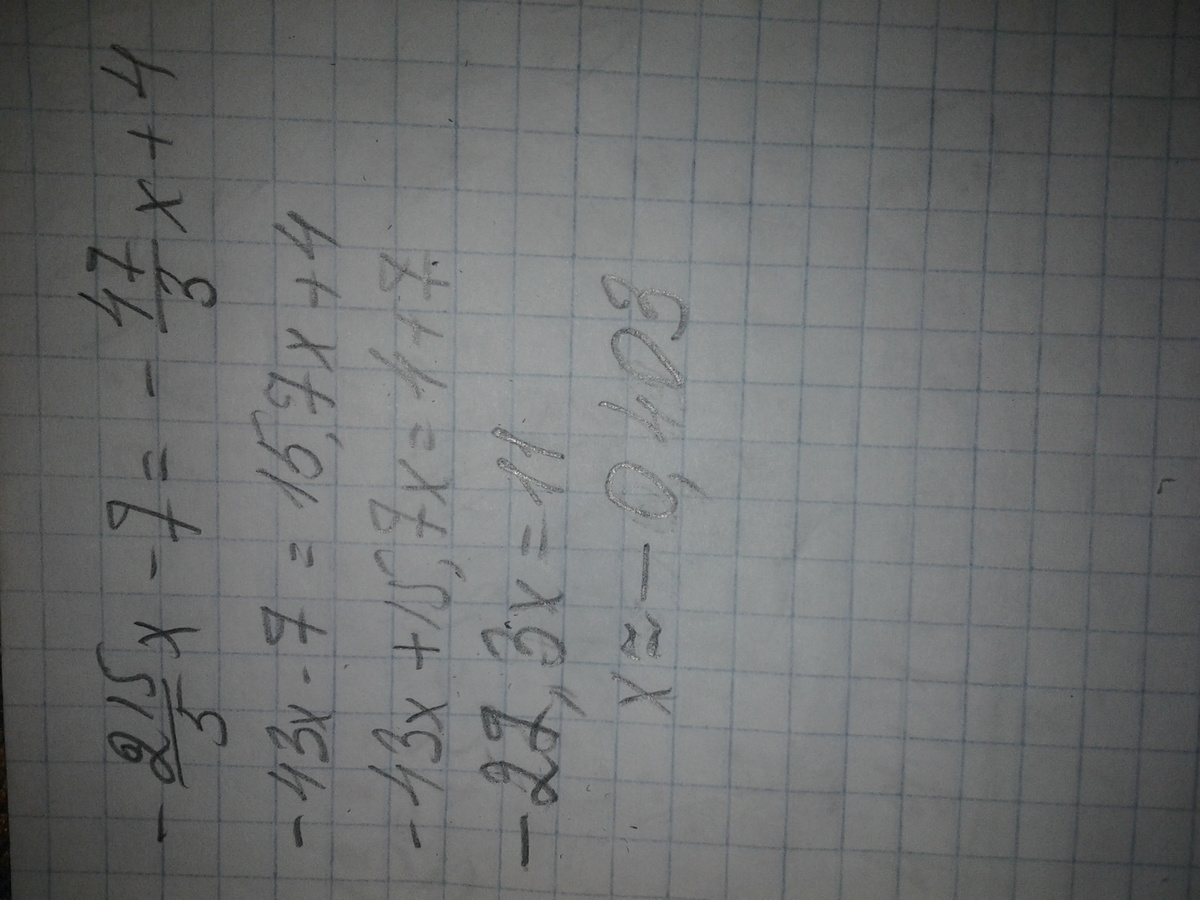 -215/5 x - 7 = - 47/3 x + 4
-43x - 7 = 15,7x + 4
-43x + 15,7x = 4 + 7
-27,3x = 11
x ≈ - 0,403